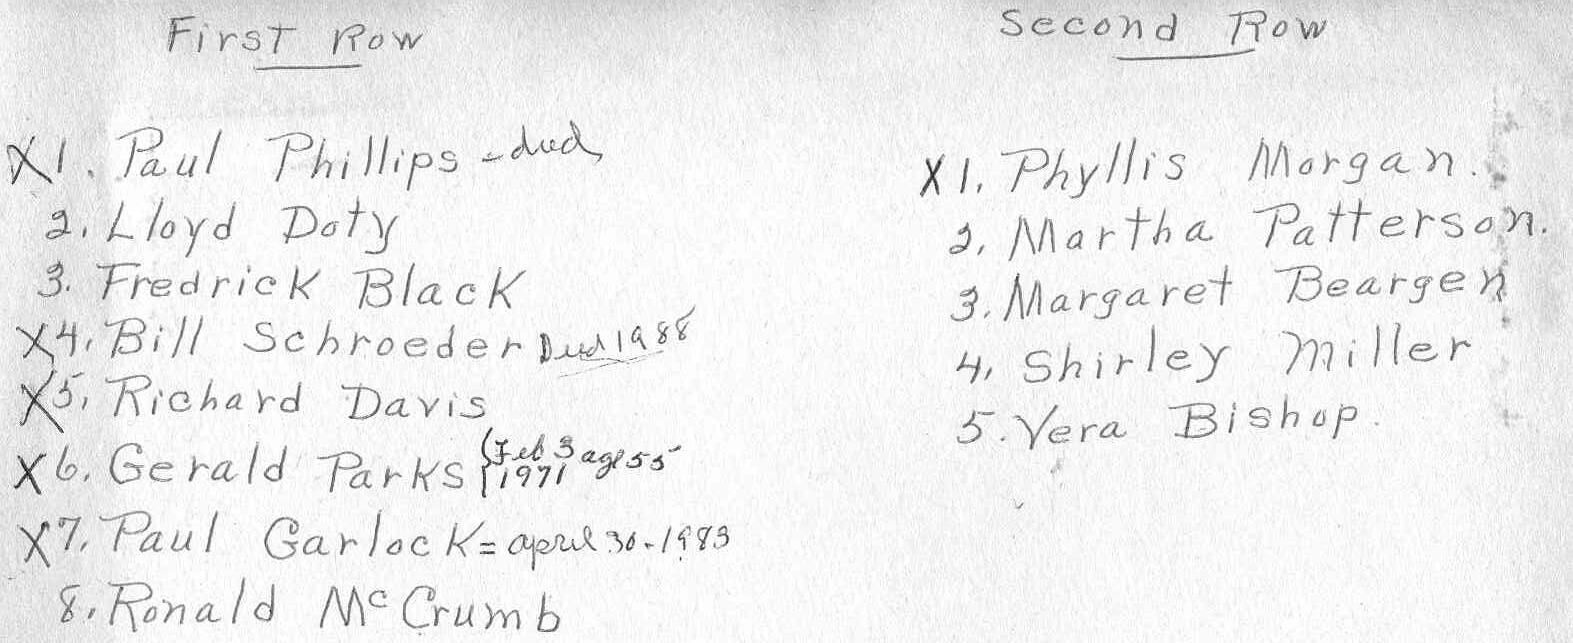 First Row
X1. Paul Phillips - died
2. Lloyd Doty
3. Fredrick Black
X4. Bill Schroeder Died 1988
X5. Richard Davis
X6. Gerald Parks (Feb 3 1971 age 55
X7. Paul Garlock = april 30-1983
8. Ronald McCrumb
Second Row
X1. Phyllis Morgan.
2. Martha Patterson.
3. Margaret Beargen
4. Shirley Miller
5. Vera Bishop.